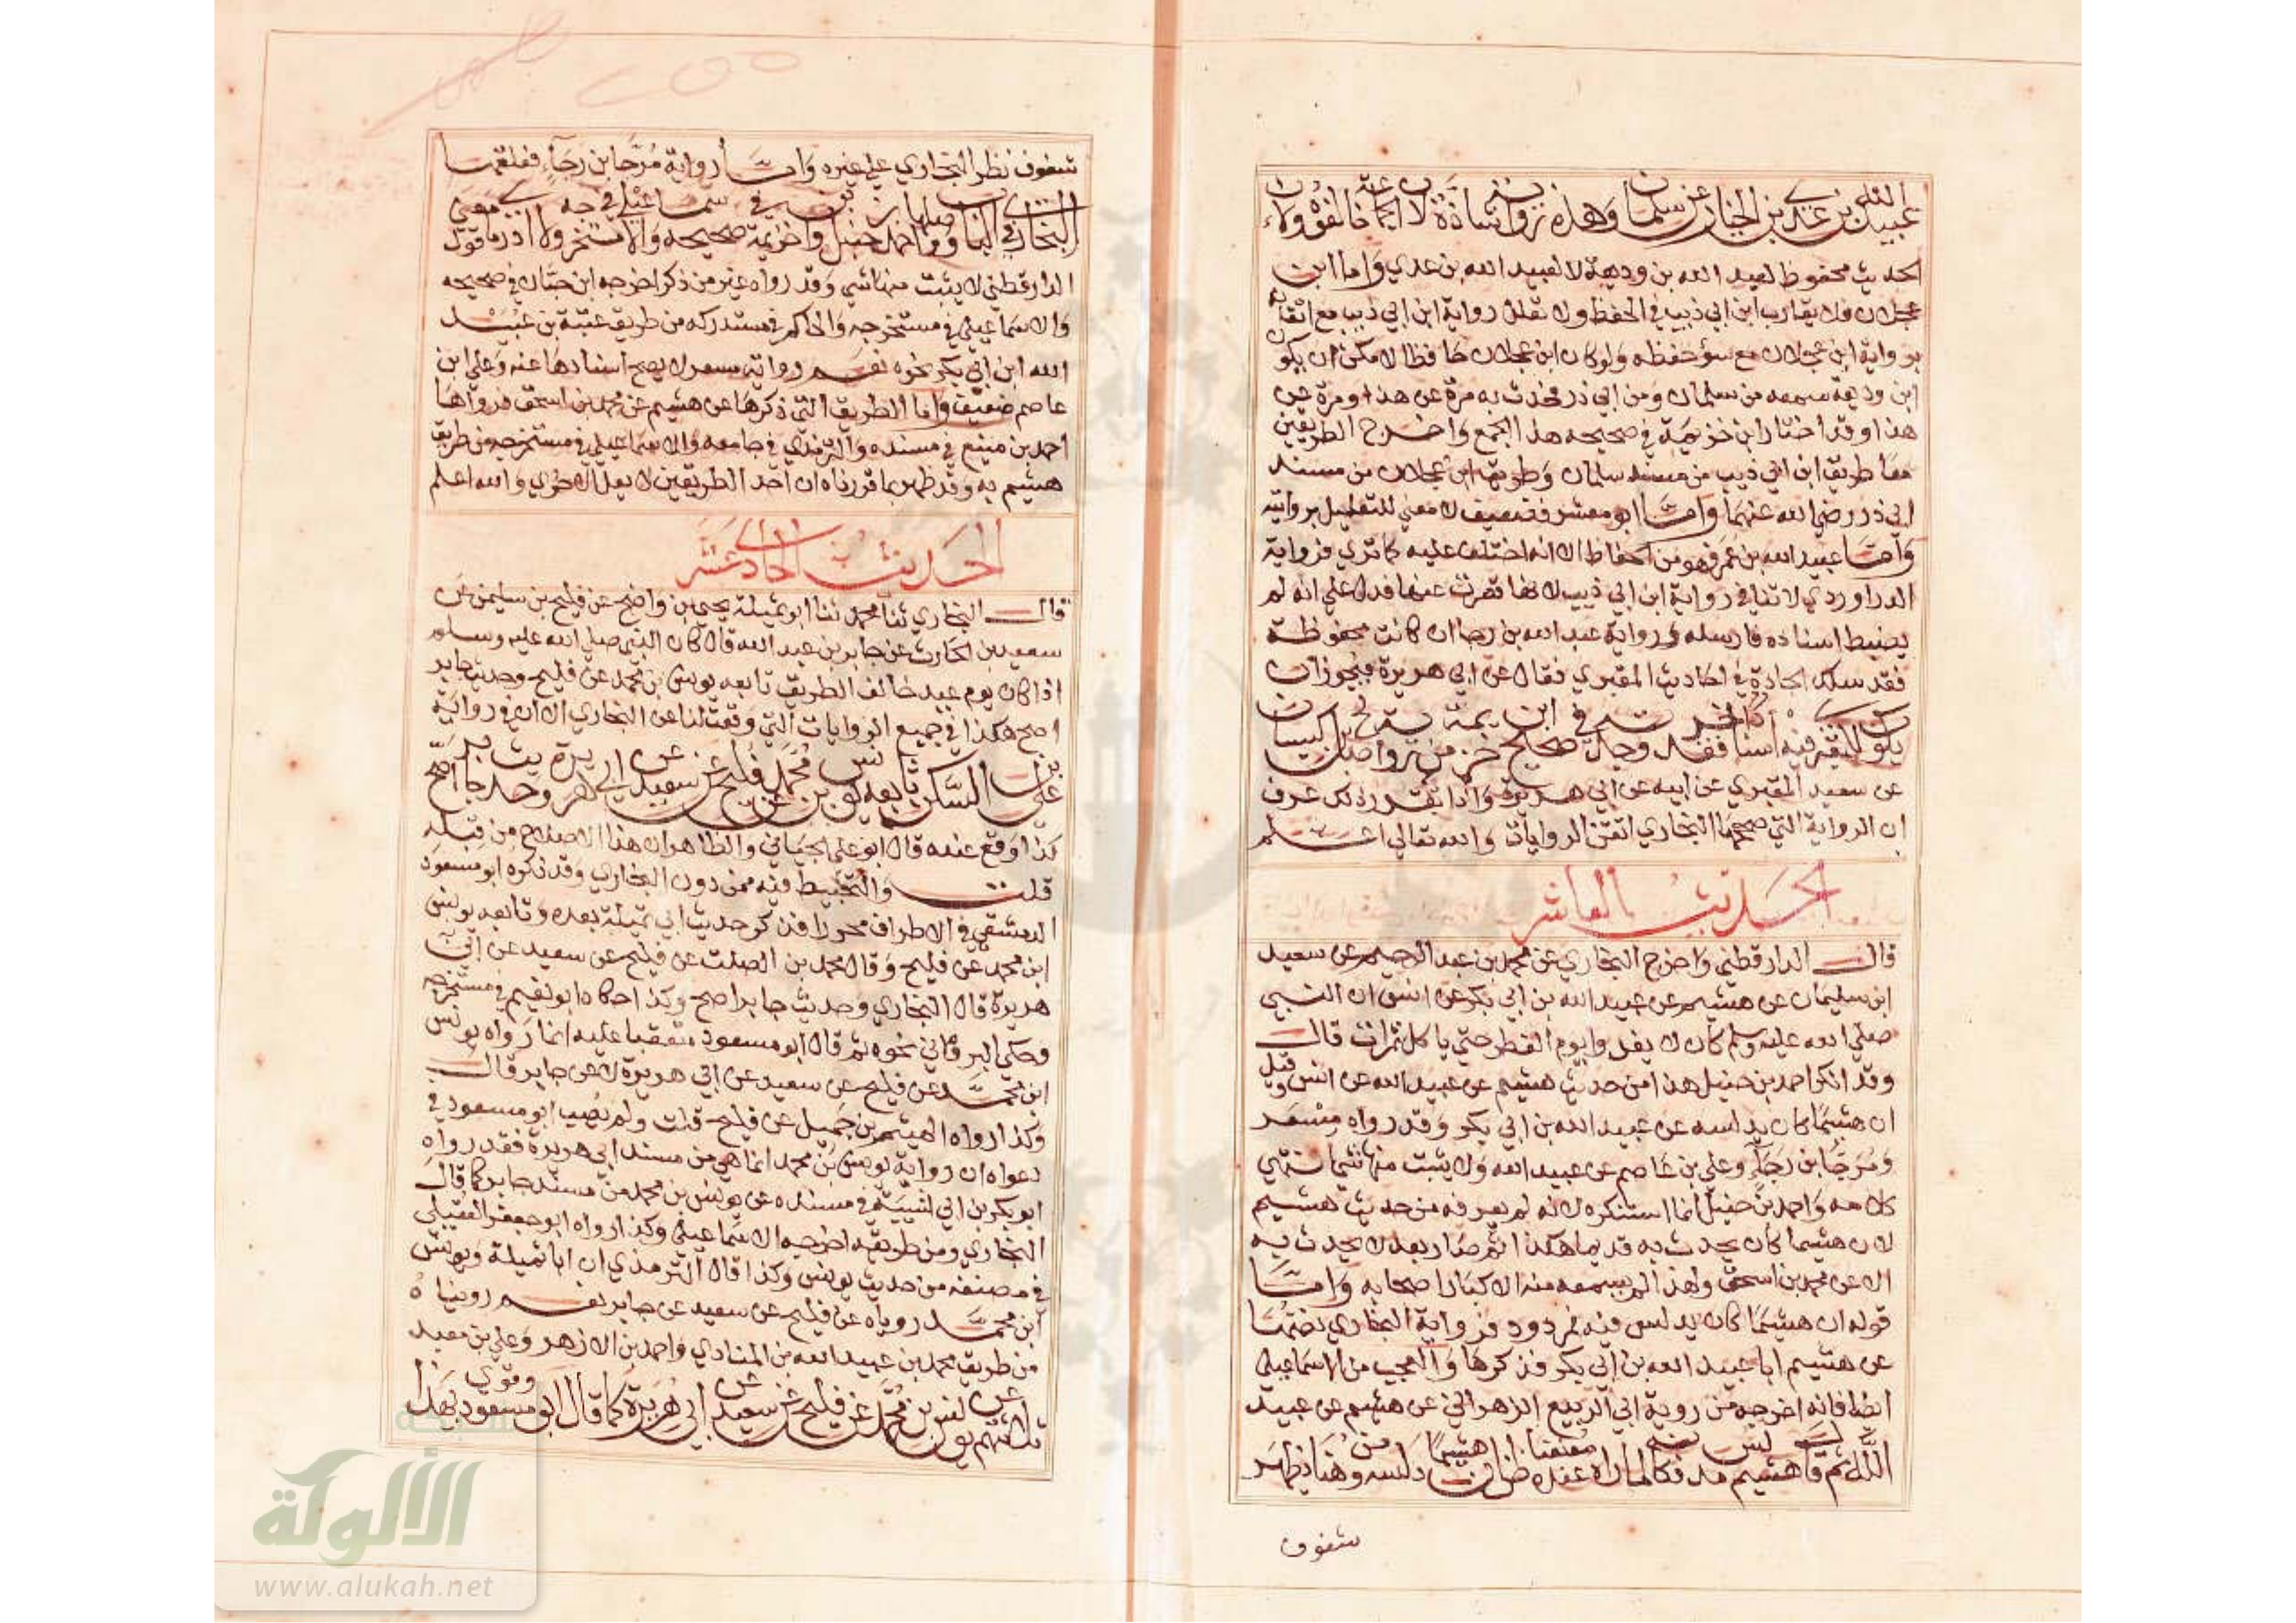 عبيد الله بن عدي بن الخيار عن سلمان وهذه رواية شاذة لان الجماعة خالفوه ولان
الحديث محفوظ لعبد الله بن وديعة لا لعبيد الله بن عدي واما ابن
عجلان فلا يقارب ابن ابي ذيب في الحفظ ولا تعلل رواية ابن ابي ذيب مع اتقانه
برواية ابن عجلان مع سؤ حفظه ولو كان ابن عجلان حافظا لامكن ان يكون
ابن وديعة سمعه من سلمان ومن ابي ذر فحدث به مرة عن هذا ومرة عن
هذا وقد اختار ابن خزيمة في صحيحه هذا الجمع واخرج الطريقين
معا طريق ابن ابي ذيب من مسند سلمان وطريق ابن عجلان من مسند
ابي ذر رضي الله عنهما واما ابو معشر فضعيف لا معني للتعليل بروايته
واما عبيد الله بن عمر فهو من الحفاظ الا انه اختلف عليه كما تري فرواية
الدراوردي لا تنافي رواية ابن ابي ذيب لانها قصرت عنها فدل علي انه لم
يضبط اسناده فارسله ورواية عبد الله بن رجا ان كانت محفوظة
فقد سلك الجادة في احاديث المقبري فقال عن ابي هريرة فيجوز ان
يكون للمقبري فيه اسناد اخر فقد وجدته في صحيح ابن خزيمة من رواية صالح بن كيسان
عن سعيد المقبري عن ابيه عن ابي هريرة واذا تقرر ذلك عرف
ان الرواية التي صححها البخاري اتقن الروايات والله تعالي اعلم
الحديث العاشر
قال الدارقطني واخرج البخاري عن محمد بن عبد الرحيم عن سعيد
ابن سليمان عن هشيم عن عبيد الله بن ابي بكر عن انس ان النبي
صلي الله عليه وسلم كان لا يغدو يوم الفطر حتي ياكل تمرات قال
وقد انكر احمد بن حنبل هذا من حديث هشيم عن عبيد الله عن انس وقيل
ان هشيما كان يدلسه عن عبيد الله بن ابي بكر وقد رواه مسعر
ومرجا بن رجاء وعلي بن عاصم عن عبيد الله ولا يثبت منها شي انتهي
كلامه واحمد بن حنبل انما استنكره لانه لم يعرفه من حديث هشيم
لان هشيما كان يحدث به قديما هكذا ثم صار بعد لا يحدث به
الا عن محمد بن اسحق ولهذا لم يسمعه منه الا كبار اصحابه واما
قوله ان هشيما كان يدلس فيه فمردود فرواية البخاري نفسها
عن هشيم انا عبيد الله بن ابي بكر فذكرها والعجب من الاسماعيلي
ايضا فانه اخرجه من رواية ابي الربيع الزهراني عن هشيم عن عبيد
الله ثم قال هشيم مدلس فكانه لما راه عنده معنعنا ظن ان هشيما دلسه ومن هنا يظهر
شفوف
شفوف نظر البخاري علي غيره واما رواية مرجا بن رجاء فعلقها
البخاري في الباب ووصلها احمد بن حنبل وابن خزيمة في صحيحه والاسماعيلي في مستخرجه ولا ادري ما معني قول
الدارقطني لا يثبت منها شي وقد رواه غير من ذكر اخرجه ابن حبان في صحيحه
والاسماعيلي في مستخرجه والحاكم في مستدركه من طريق عتبة بن عبيد
الله ابن ابي بكر نحوه نعم رواية مسعر لا يصح اسنادها عنه وعلي ابن
عاصم ضعيف واما الطريق التي ذكرها عن هشيم عن محمد بن اسحق فرواها
احمد بن منيع في مسنده والترمذي في جامعه والاسماعيلي في مستخرجه من طريق
هشيم به وقد ظهر بما قررناه ان احد الطريقين لا يعل الاخري والله اعلم
الحديث الحادي عشر
قال البخاري ثنا محمد ثنا ابو تميلة يحيي بن واضح عن فليح بن سليمن عن
سعيد بن الحارث عن جابر بن عبد الله قال كان النبي صلي الله عليه وسلم
اذا كان يوم عيد خالف الطريق تابعه يونس بن محمد عن فليح وحديث جابر
اصح هكذا في جميع الروايات التي وقعت لنا عن البخاري الا ان في رواية
علي بن السكن تابعه يونس بن محمد عن فليح عن سعيد عن ابي هريرة وحديث جابر اصح
كذا وقع عنده قال ابو علي الجياني والظاهر ان هذا الاصلاح من قبله
قلت والتخبيط فيه ممن دون البخاري وقد ذكره ابو مسعود
الدمشقي في الاطراف محررا فذكر حديث ابي تميلة بعده وتابعه يونس
ابن محمد عن فليح وقال محمد بن الصلت عن فليح عن سعيد عن ابي
هريرة قال البخاري وحديث جابر اصح وكذا حكاه ابو نعيم في مستخرجه
وحكي البرقاني نحوه ثم قال ابو مسعود متعقبا عليه انما رواه يونس
ابن محمد عن فليح عن سعيد عن ابي هريرة لا عن جابر قال
وكذا رواه الهيثم بن جميل عن فليح قلت ولم يصب ابو مسعود في
دعواه ان رواية يونس بن محمد انما هي من مسند ابي هريرة فقد رواه
ابو بكر بن ابي شيبة في مسنده عن يونس بن محمد من مسند جابر كما قال
البخاري ومن طريقه اخرجه الاسماعيلي وكذا رواه ابو جعفر العقيلي
في مصنفه من حديث يونس وكذا قال الترمذي ان ابا تميلة ويونس
ابن محمد روياه عن فليح عن سعيد عن جابر نعم رويناه
من طريق محمد بن عبيد الله بن المنادي واحمد بن الازهر وعلي بن معبد
ثلاثتهم عن يونس بن محمد عن فليح عن سعيد عن ابي هريرة كما قال ابو مسعود وقوي بهذا
الألوكة
www.alukah.net